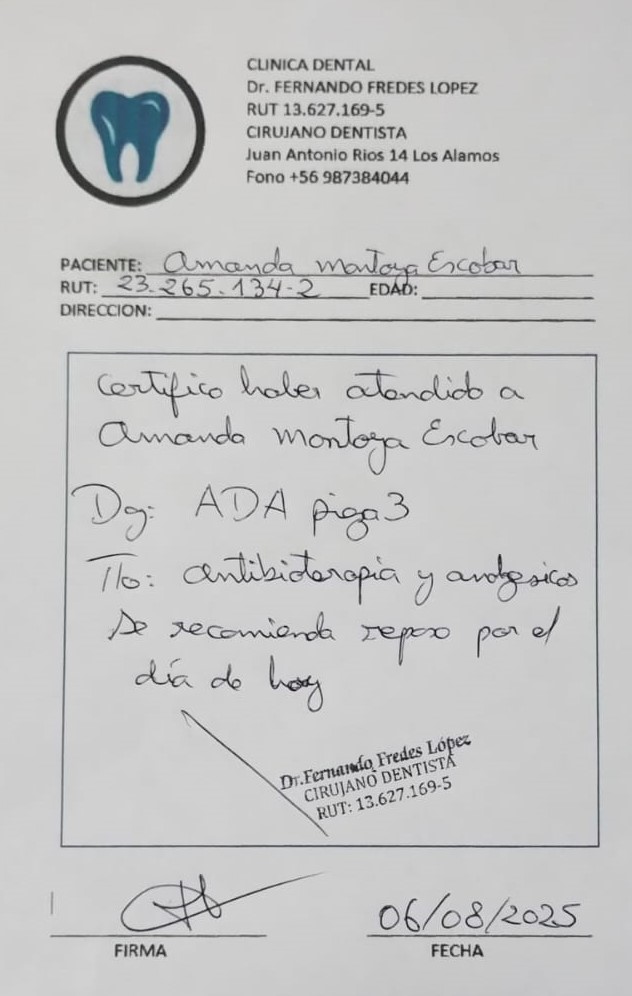 CLINICA DENTAL
Dr. FERNANDO FREDES LOPEZ
RUT 13.627.169-5
CIRUJANO DENTISTA
Juan Antonio Rios 14 Los Alamos
Fono +56 987384044
PACIENTE: Amanda Montoya Escobar
RUT: 23.265.134-2 EDAD:
DIRECCION:
Certifico haber atendido a
Amanda Montoya Escobar
Dg: ADA pieza 3
Tto: antibioterapia y analgesicos
Se recomienda reposo por el
día de hoy
Dr.Fernando Fredes López
CIRUJANO DENTISTA
RUT: 13.627.169-5
06/08/2025
FIRMA FECHA